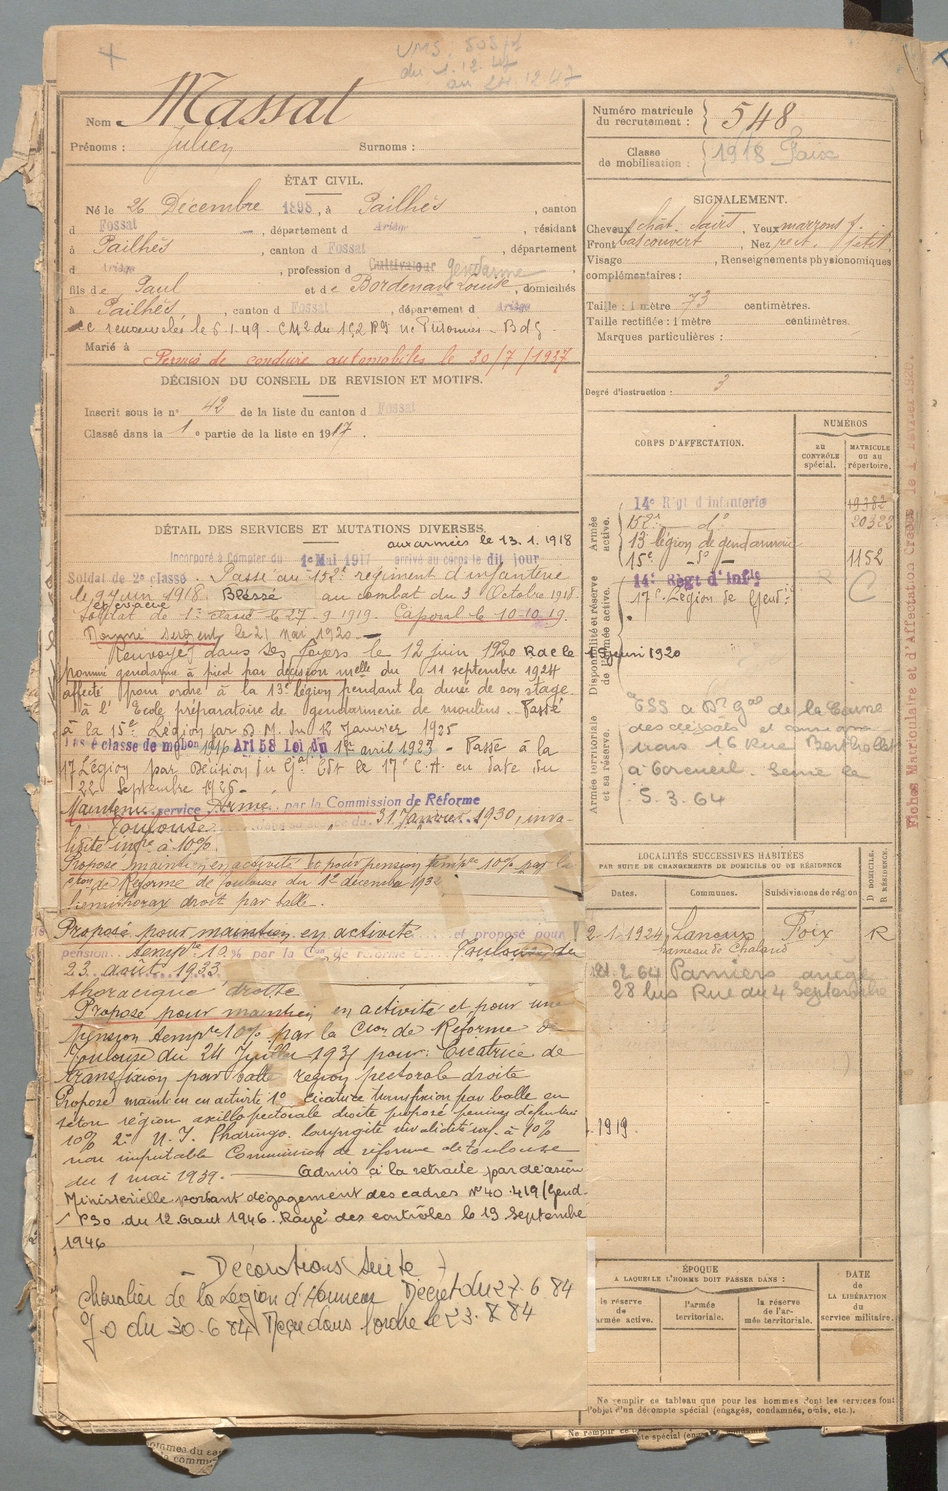 UMS. 503/1
du 1.12.47
au 24.12.47
Nom Massat
Prénoms : Julien Surnoms :
ÉTAT CIVIL.
Né le 26 Décembre 1898, à Pailhès, canton
d Fossat, département d Ariège, résidant
à Pailhès, canton d Fossat, département
d Ariège, profession d Cultivateur Gendarme
fils de Paul et de Bordenave Louise, domiciliés
à Pailhès, canton d Fossat, département d Ariège
renouvelée le 6.1.49
Marié à
Permis de conduire automobiles le 30/7/1937
DÉCISION DU CONSEIL DE REVISION ET MOTIFS.
Inscrit sous le n° 42 de la liste du canton d Fossat
Classé dans la 1e partie de la liste en 1917.
DÉTAIL DES SERVICES ET MUTATIONS DIVERSES.
aux armées le 13.1.1918
Incorporé à Compter du 1er Mai 1917 arrivé au corps le dit jour
Soldat de 2e classe. Passé au 152e régiment d'infanterie
le 9 Juin 1918. Blessé au combat du 3 Octobre 1918.
Soldat de 1e classe le 27-9-1919. Caporal le 10-10-19.
Nommé sergent le 21 mai 1920.
Renvoyé dans ses foyers le 12 juin 1920 Rac le 15 juin 1920
Nommé gendarme à pied par décision mlle du 11 septembre 1924
affecté pour ordre à la 13e légion pendant la durée de son stage
à l'Ecole préparatoire de gendarmerie de moulins. Passé
à la 15e Légion par D.M. du 12 Janvier 1925
classe de mobon 1916 Art 58 Loi du 1er avril 1923 - Passé à la
17 Légion par Décision du Gal Cdt le 17e C.A. en date du
22 Septembre 1926-
Maintenu service Armé par la Commission de Réforme
Toulouse du 31 Janvier 1930, inva-
lidité infre à 10%.
Proposé maintien en activité et pour pension tempre 10% par la
Con de Réforme de Toulouse du 1er décembre 1932
hémithorax droit par balle.
Proposé pour maintien en activité et proposé pour
pension tempre 10 % par la Con de réforme de Toulouse du
23 août 1933
thoracique droite
Proposé pour maintien en activité et pour une
pension tempre 10% par la Cion de Réforme de
Toulouse du 24 Juillet 1937 pour: Cicatrice de
transfixion par balle région pectorale droite
Proposé maintien en activité 1° cicatrice transfixion par balle en
séton région axillo pectorale droite proposé pension définitive
10% 2° N.I. Pharingo laryngite invalidité inf. à 10%
non imputable Commission de réforme de Toulouse
du 1 mai 1939. Admis à la retraite par décision
Ministérielle portant dégagement des cadres N°40.419/Gend.
P30 du 12 Aout 1946. Rayé des contrôles le 19 Septembre
1946
Décorations (suite)
Chevalier de la Légion d'Honneur Décret du 27.6.84
J.O du 30.6.84 Reçu dans l'ordre le 23.8.84
Numéro matricule du recrutement : 548
Classe de mobilisation : 1918
SIGNALEMENT.
Cheveux chât. clairs, Yeux marrons f.
Front bas couvert, Nez rect. petit
Visage , Renseignements physionomiques
complémentaires :
Taille : 1 mètre 73 centimètres.
Taille rectifiée : 1 mètre centimètres.
Marques particulières :
Degré d'instruction : 3
CORPS D'AFFECTATION.
NUMÉROS
AU CONTRÔLE spécial.
MATRICULE OU AU répertoire.
Armée active.
14e Régt d'Infanterie 19382
152e do 20322
13 légion de gendarmerie
15e - do - 1152
Disponibilité et réserve de l'armée active.
14e Régt d'Infie
17e Légion de Gendie C
Armée territoriale et sa réserve.
à Arcueil. Seine le
5.3.64
LOCALITÉS SUCCESSIVES HABITÉES
PAR SUITE DE CHANGEMENTS DE DOMICILE OU DE RÉSIDENCE
Dates. Communes. Subdivisions de région
D DOMICILE. R RÉSIDENCE.
2-1-1924 Lanoux Foix R
hameau de
2.64 Pamiers ariège
28 bis Rue du 4 Septembre
1919
ÉPOQUE
A LAQUELLE L'HOMME DOIT PASSER DANS :
la réserve de l'armée active.
l'armée territoriale.
la réserve de l'armée territoriale.
DATE de LA LIBÉRATION du service militaire.
Ne remplir ce tableau que pour les hommes dont les services font
l'objet d'un décompte spécial (engagés, condamnés, omis, etc.).
Fiches Matriculaire et d'Affectation Créées le 1 Février 1920.